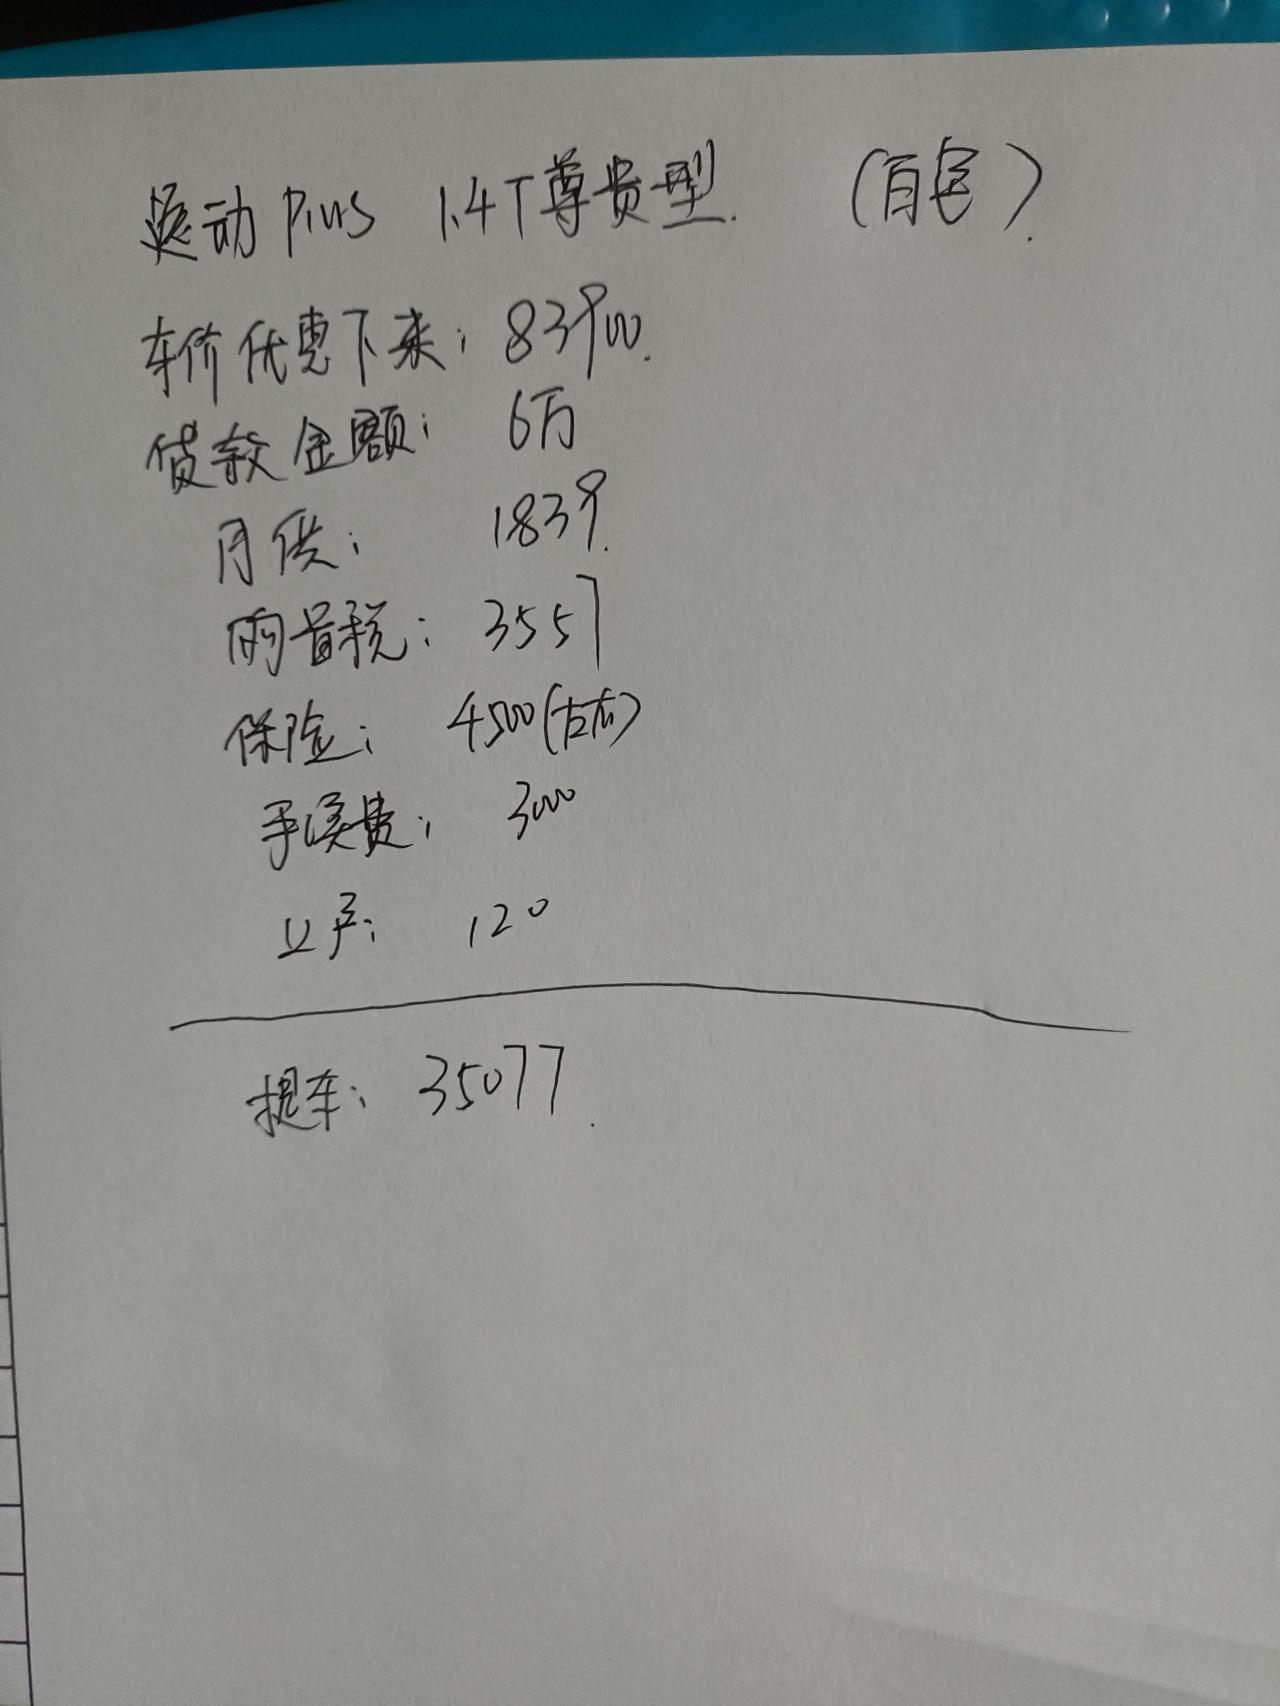 逸动Plus 1.4T尊贵型. (白色).
车价优惠下来: 83900.
贷款金额: 6万
月供: 1839.
购置税: 3557
保险: 4500(左右)
手续费: 3000
立户: 120
提车: 35077.